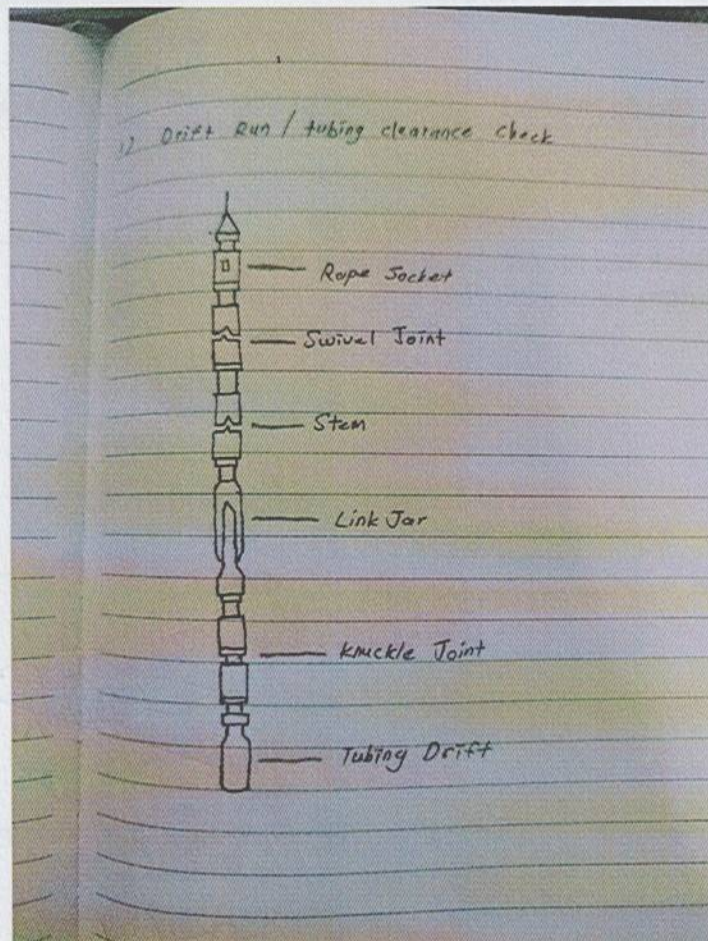 1) Drift Run / tubing clearance check
Rope Socket
Swivel Joint
Stem
Link Jar
Knuckle Joint
Tubing Drift